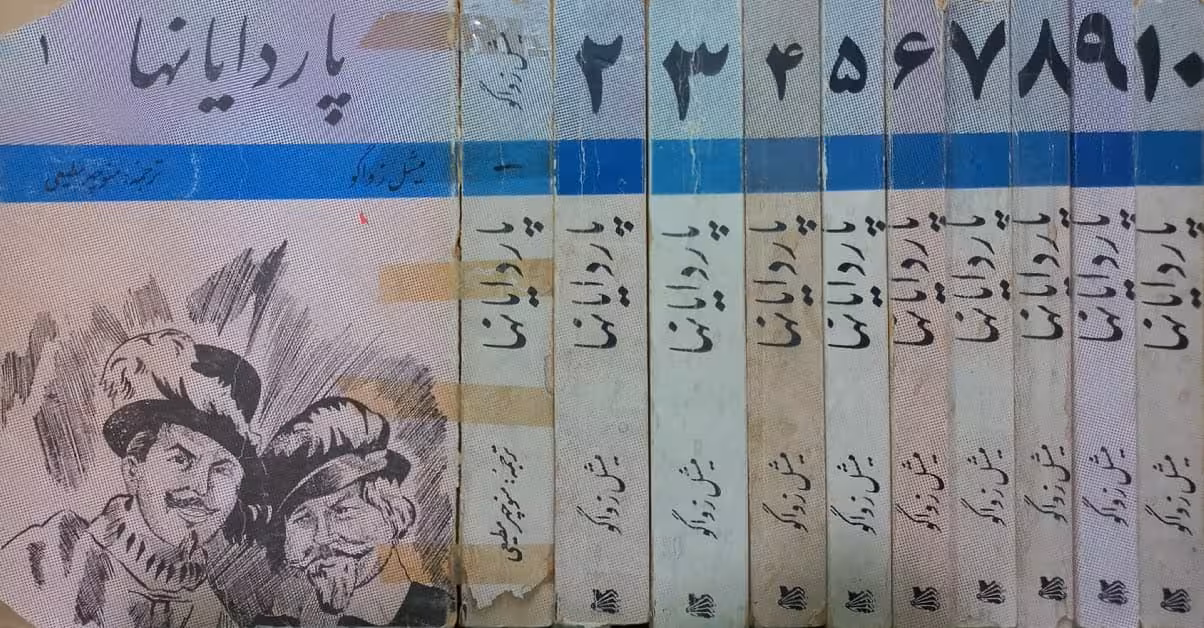 ۱
پاردایانها
میشل زواگو
ترجمه: منوچهر مطیعی
میشل زواگو
۱
پاردایانها
ترجمه: منوچهر مطیعی
۲
پاردایانها
میشل زواگو
۳
پاردایانها
میشل زواگو
۴
پاردایانها
میشل زواگو
۵
پاردایانها
میشل زواگو
۶
پاردایانها
میشل زواگو
۷
پاردایانها
میشل زواگو
۸
پاردایانها
میشل زواگو
۹
پاردایانها
میشل زواگو
۱۰
پاردایانها
میشل زواگو